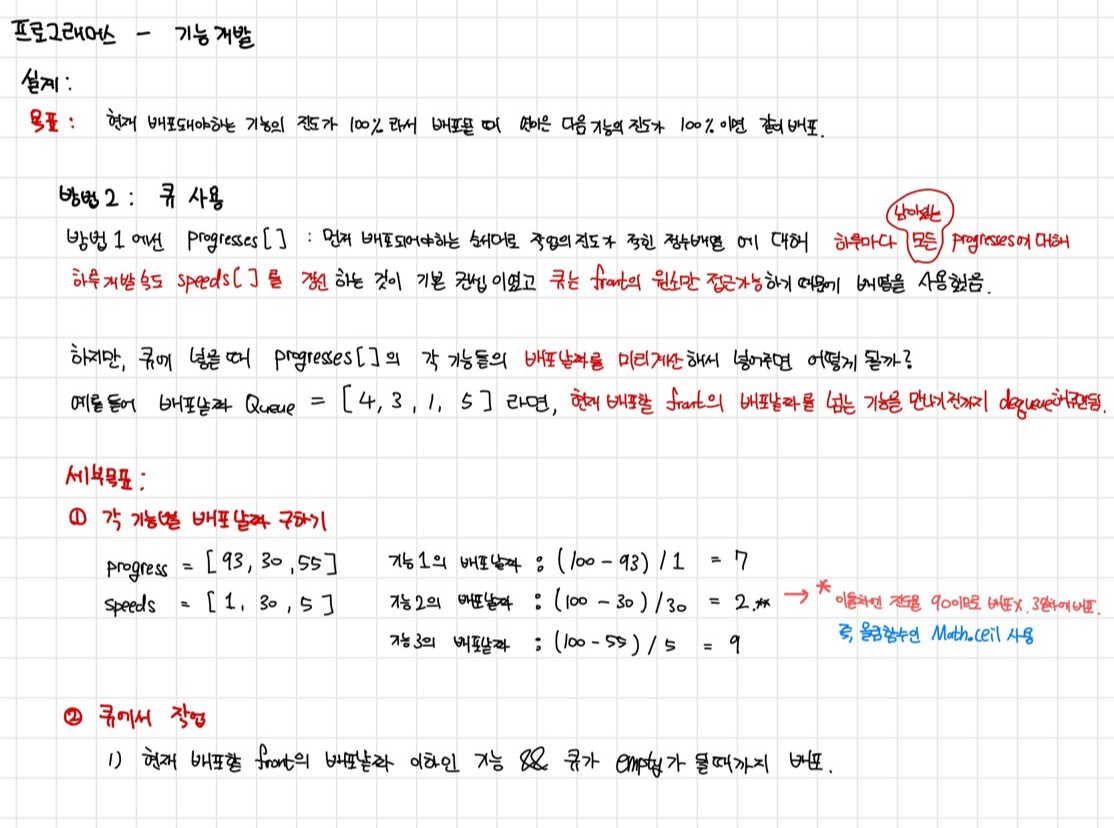 프로그래머스 - 기능개발
설계:
목표: 현재 배포돼야하는 기능의 진도가 100%라서 배포될 때 연이은 다음 기능의 진도가 100%이면 같이 배포.
방법2: 큐 사용
남아있는
방법1에선 progresses[] : 먼저 배포되어야하는 순서대로 작업의 진도가 적힌 정수배열 에 대해 하루마다 모든 progresses에 대해
하루 개발속도 speeds[]를 갱신하는 것이 기본 컨셉이였고 큐는 front의 원소만 접근가능하기 때문에 배열을 사용했음.
하지만, 큐에 넣을때 progresses[]의 각 기능들의 배포날짜를 미리계산해서 넣어주면 어떻게 될까?
예를들어 배포날짜 Queue = [4, 3, 1, 5] 라면, 현재 배포할 front의 배포날짜를 넘는 기능을 만나기전까지 dequeue해주면됨.
세부목표:
① 각 기능별 배포날짜 구하기
progress = [93, 30, 55] 기능1의 배포날짜 : (100-93)/1 = 7
speeds = [1, 30, 5] 기능2의 배포날짜 : (100-30)/30 = 2.** → * 이틀차엔 진도율 90이므로 배포X. 3일차에 배포.
기능3의 배포날짜 : (100-55)/5 = 9 즉, 올림함수인 Math.ceil 사용
② 큐에서 작업
1) 현재 배포할 front의 배포날짜 이하인 기능 && 큐가 empty가 될때까지 배포.